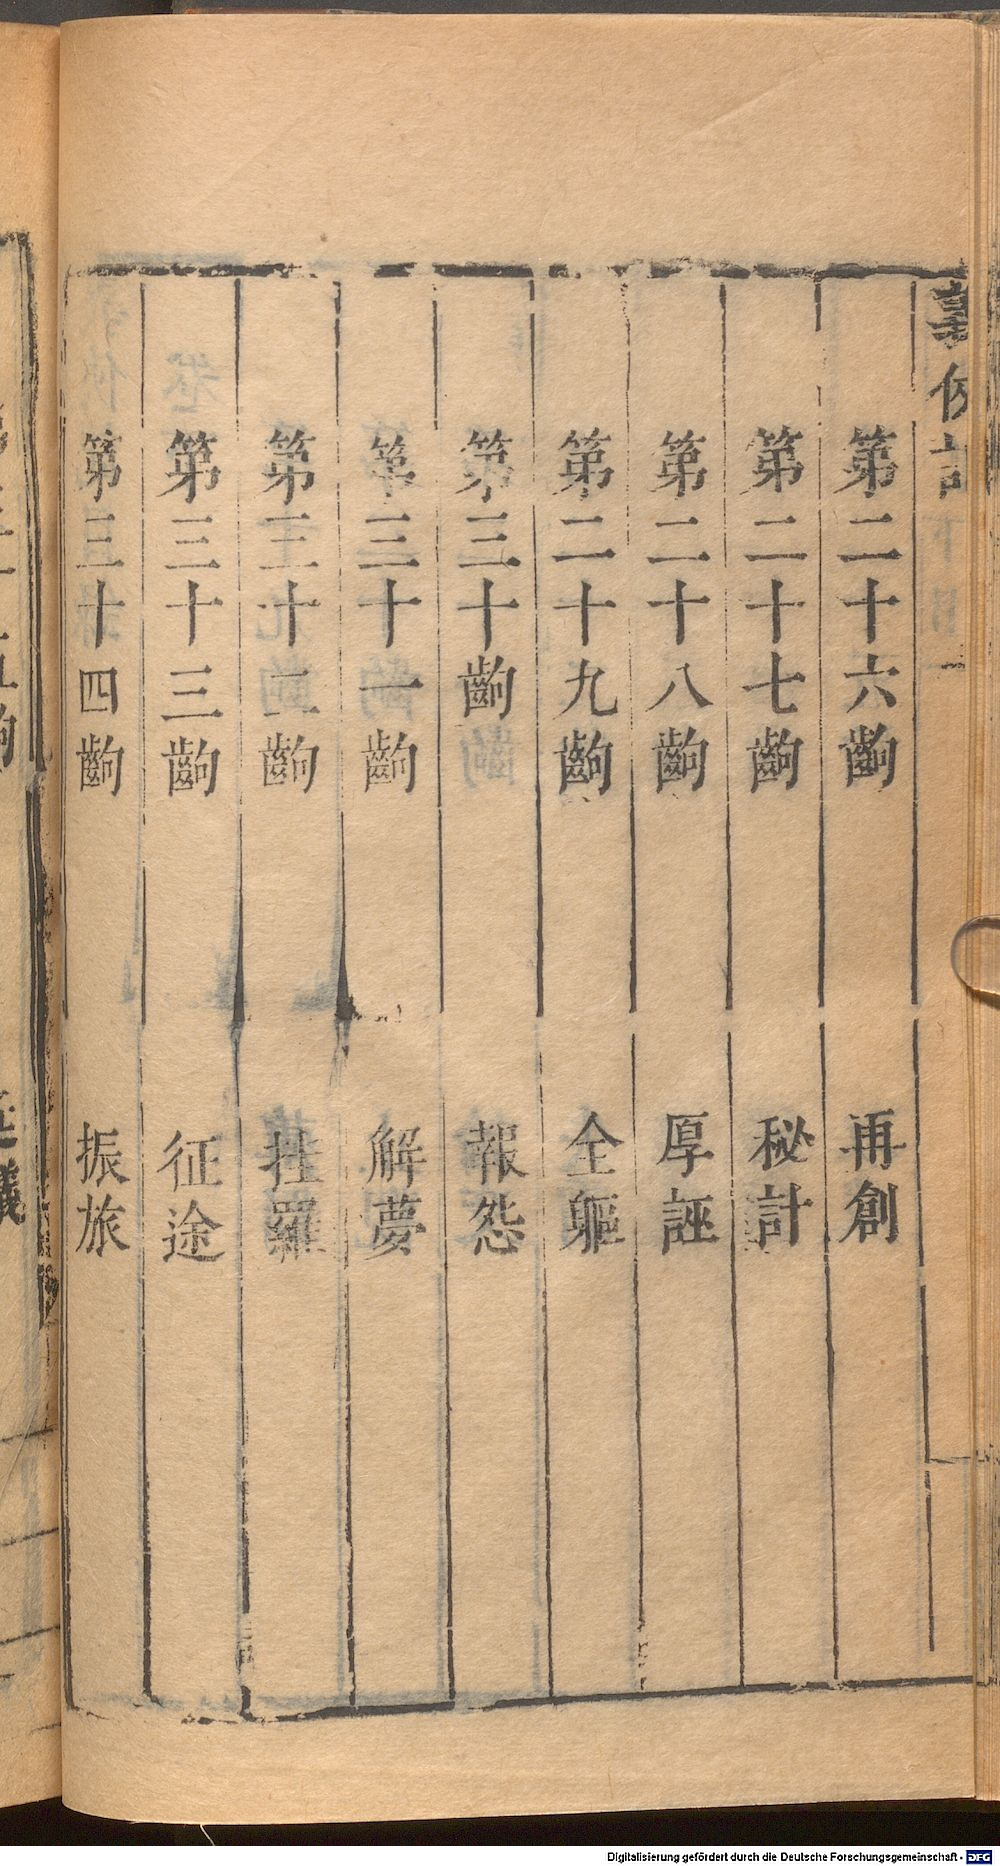 第二十六齣 再創
第二十七齣 秘計
第二十八齣 厚誣
第二十九齣 全軀
第三十齣 報怨
第三十一齣 解夢
第三十二齣 挂羅
第三十三齣 征途
第三十四齣 振旅
Digitalisierung gefördert durch die Deutsche Forschungsgemeinschaft - DFG